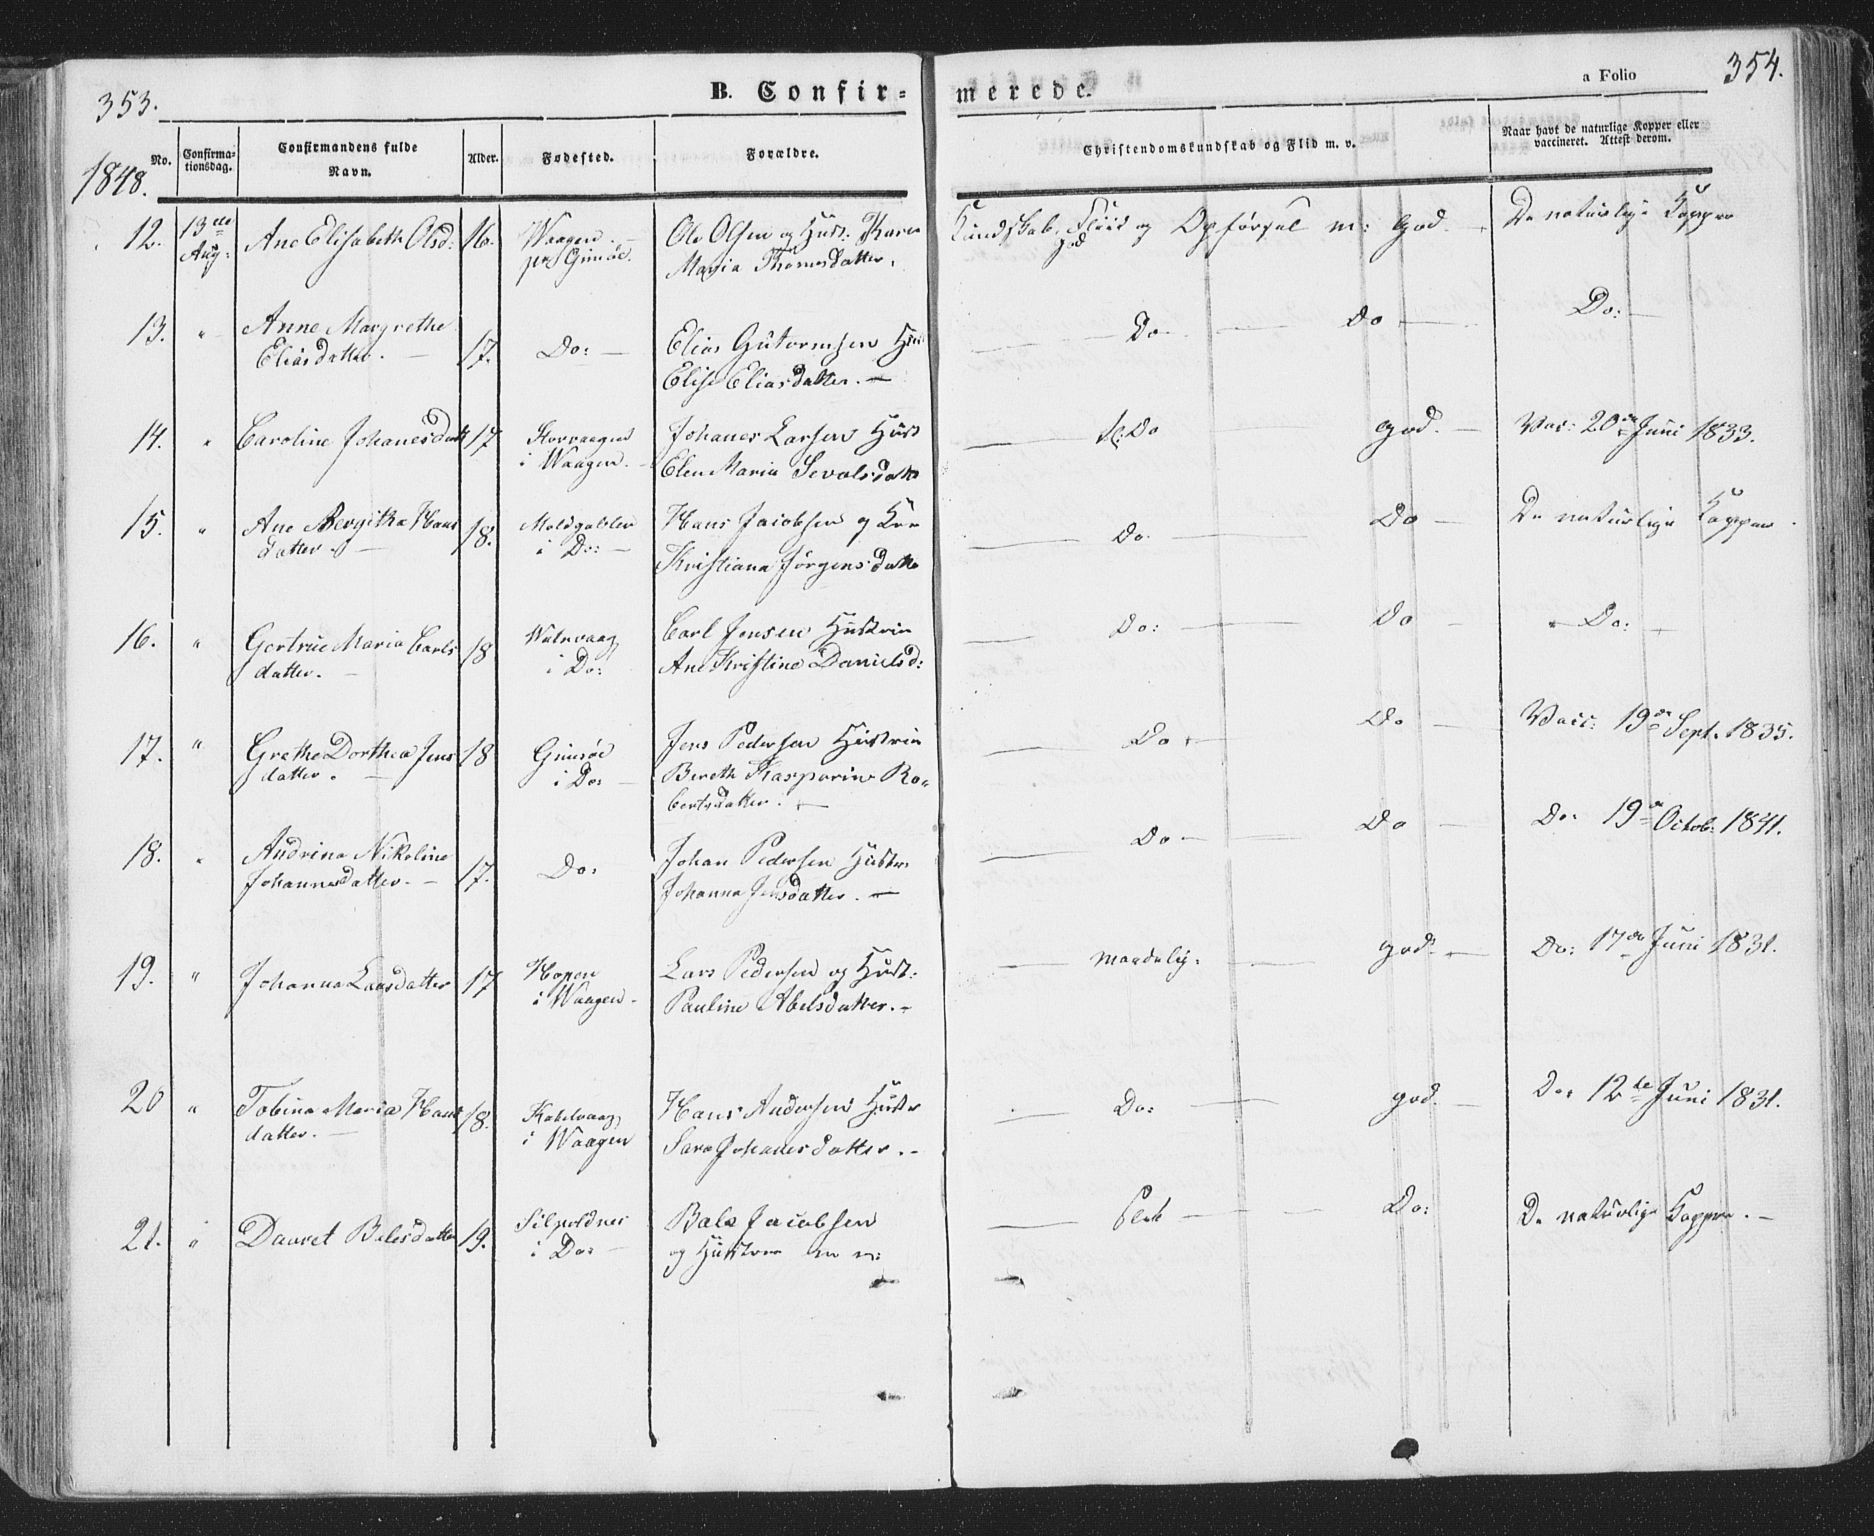 353.
B. Confir-
merede.
a Folio
354.
1848.
No.
Confirma-
tionsdag.
Confirmandens fulde
Navn.
Alder.
Fødested.
Forældre.
Christendomskundskab og Flid m. v.
Naar havt de naturlige Kopper eller
vaccineret. Attest derom.
12. 13de Ane Elisabeth Olsd: 16. Waagen Ole Olsen og Hust: Karen Kundskab, Fliid og Opførsel m: God. De naturlige Kopper
Aug: Gimsöe. Maria Thomesdatter. god
13. " Anne Margrethe
Eliasdatter. 17. Do: Elias Gutormsen Hust Do Do Do:
Elise Eliasdatter.
14. " Caroline Johanesdatt 17 Storvaagen Johanes Larsen Hust Do god. Vac: 20de Juni 1833.
i Waagen. Elen Maria Sevalsdatt
15. " Ane Hans 18. Moldgablen Hans Jacobsen og Do. Do De naturlige Kopper.
datter. i Do: Kristiana Jörgensdatte
16. " Gertrue Maria Carls 18 Carl Jensen Hustrue Do: Do Do:
datter. i Do: Ane Kristine Danielsd:
17. " Grethe Dorthea Jens 18 Gimsöe Jens Pedersen Hustrue Do Do Vacc: 19de Sept. 1835.
datter. i Do: Bereth Kasparine Ro-
bertsdatter.
18. " Andrina Nikoline Johan Pedersen Hustr. Do Do Do: 19de Octob: 1841.
Johannesdatter. 17. Do: Johanna Jensdatter.
19. " Johanna Larsdatter 17 Hopen Lars Pedersen og Hust: maadelig. god. Do: 17de Juni 1831.
i Waagen. Pauline Abelsdatter.
20 " Tobina Maria Hans 18. Kabelvaag Hans Andersen Hustr Do: god. Do: 12te Juni 1831.
datter. i Waagen Sara Johanesdatter.
21. " Dauret Balsdatter 19. Bals Jacobsen Do: De naturlige Kopper.
i Do: og Hustrue